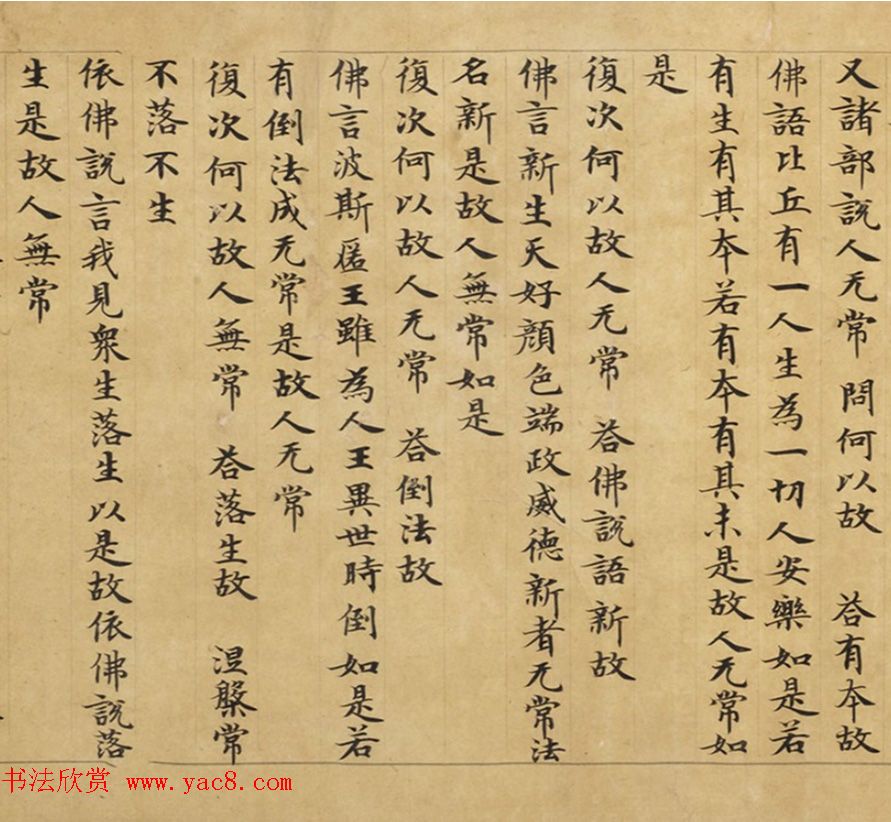 又諸部說人无常 問何以故 荅有本故
佛語比丘有一人生為一切人安樂如是若
有生有其夲若有夲有其末是故人无常如
是
復次何以故人无常 荅佛說語新故
佛言新生天好顏色端政威德新者无常法
名新是故人無常如是
復次何以故人无常 荅倒法故
佛言波斯匿王雖為人王異世時倒如是若
有倒法成无常是故人无常
復次何以故人無常 荅落生故 涅槃常
不落不生
依佛說言我見衆生落生以是故依佛說落
生是故人無常
书法欣赏 www.yac8.com